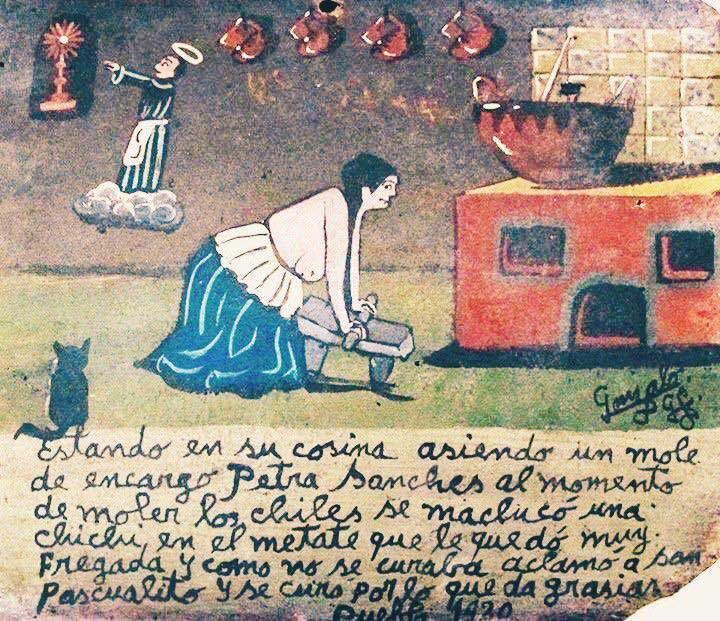 Gonzalo
Estando en su cosina asiendo un mole
de encargo Petra Sanches al momento
de moler los chiles se machucó una
chichi, en el metate que le quedó muy.
Fregada y como no se curaba aclamó á San
Pascualito y se curo por lo que da grasias
Puebla 1920